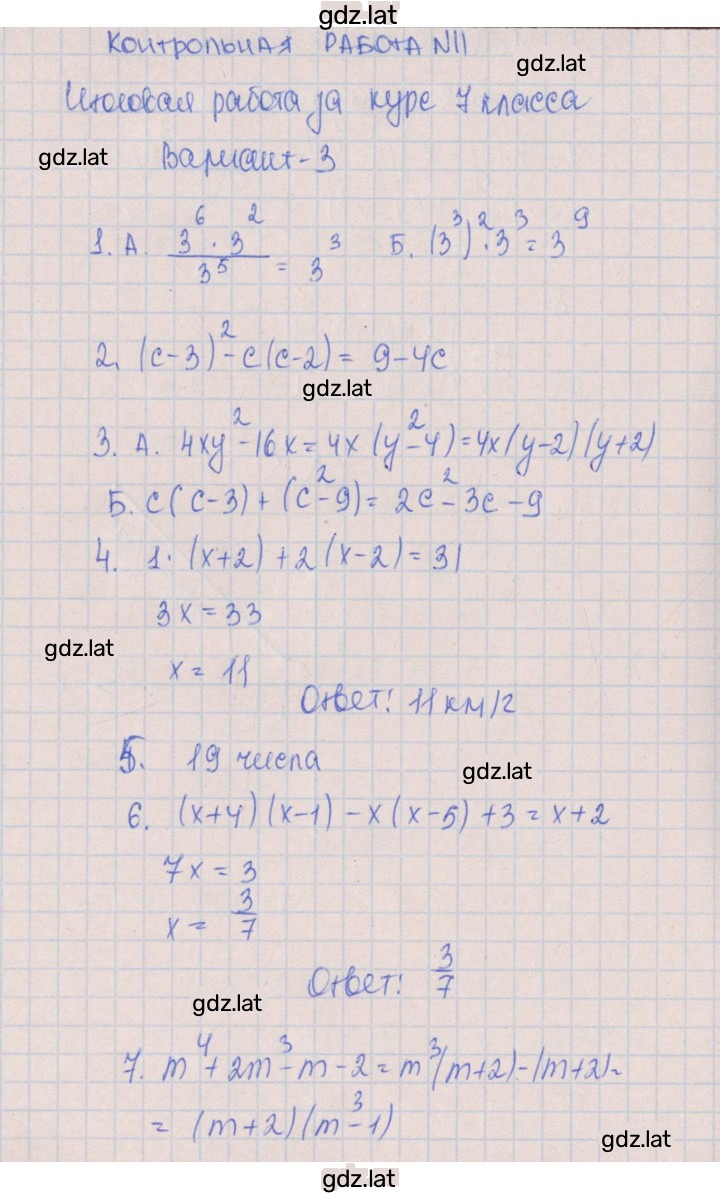 gdz.lat
КОНТРОЛЬНАЯ РАБОТА N11
gdz.lat
Итоговая работа за курс 7 класса
gdz.lat Вариант-3
1. А. (3⁶ · 3²)/3⁵ = 3³ Б. (3³)² · 3³ = 3⁹
2. (c-3)² - c(c-2) = 9-4c
gdz.lat
3. А. 4xy² - 16x = 4x(y² - 4) = 4x(y-2)(y+2)
Б. c(c-3) + (c² - 9) = 2c² - 3c - 9
4. 1·(x+2) + 2(x-2) = 31
3x = 33
gdz.lat
x = 11
Ответ: 11 км/2
5. 19 числа
gdz.lat
6. (x+4)(x-1) - x(x-5) + 3 = x+2
7x = 3
x = 3/7
Ответ: 3/7
gdz.lat
7. m⁴ + 2m³ - m - 2 = m³(m+2) - (m+2) =
= (m+2)(m³ - 1)
gdz.lat
gdz.lat